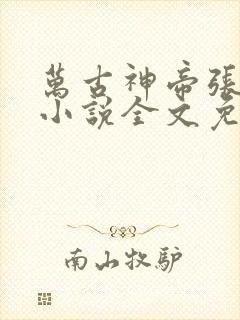 萬古神帝張
小說全文免
南山牧驴